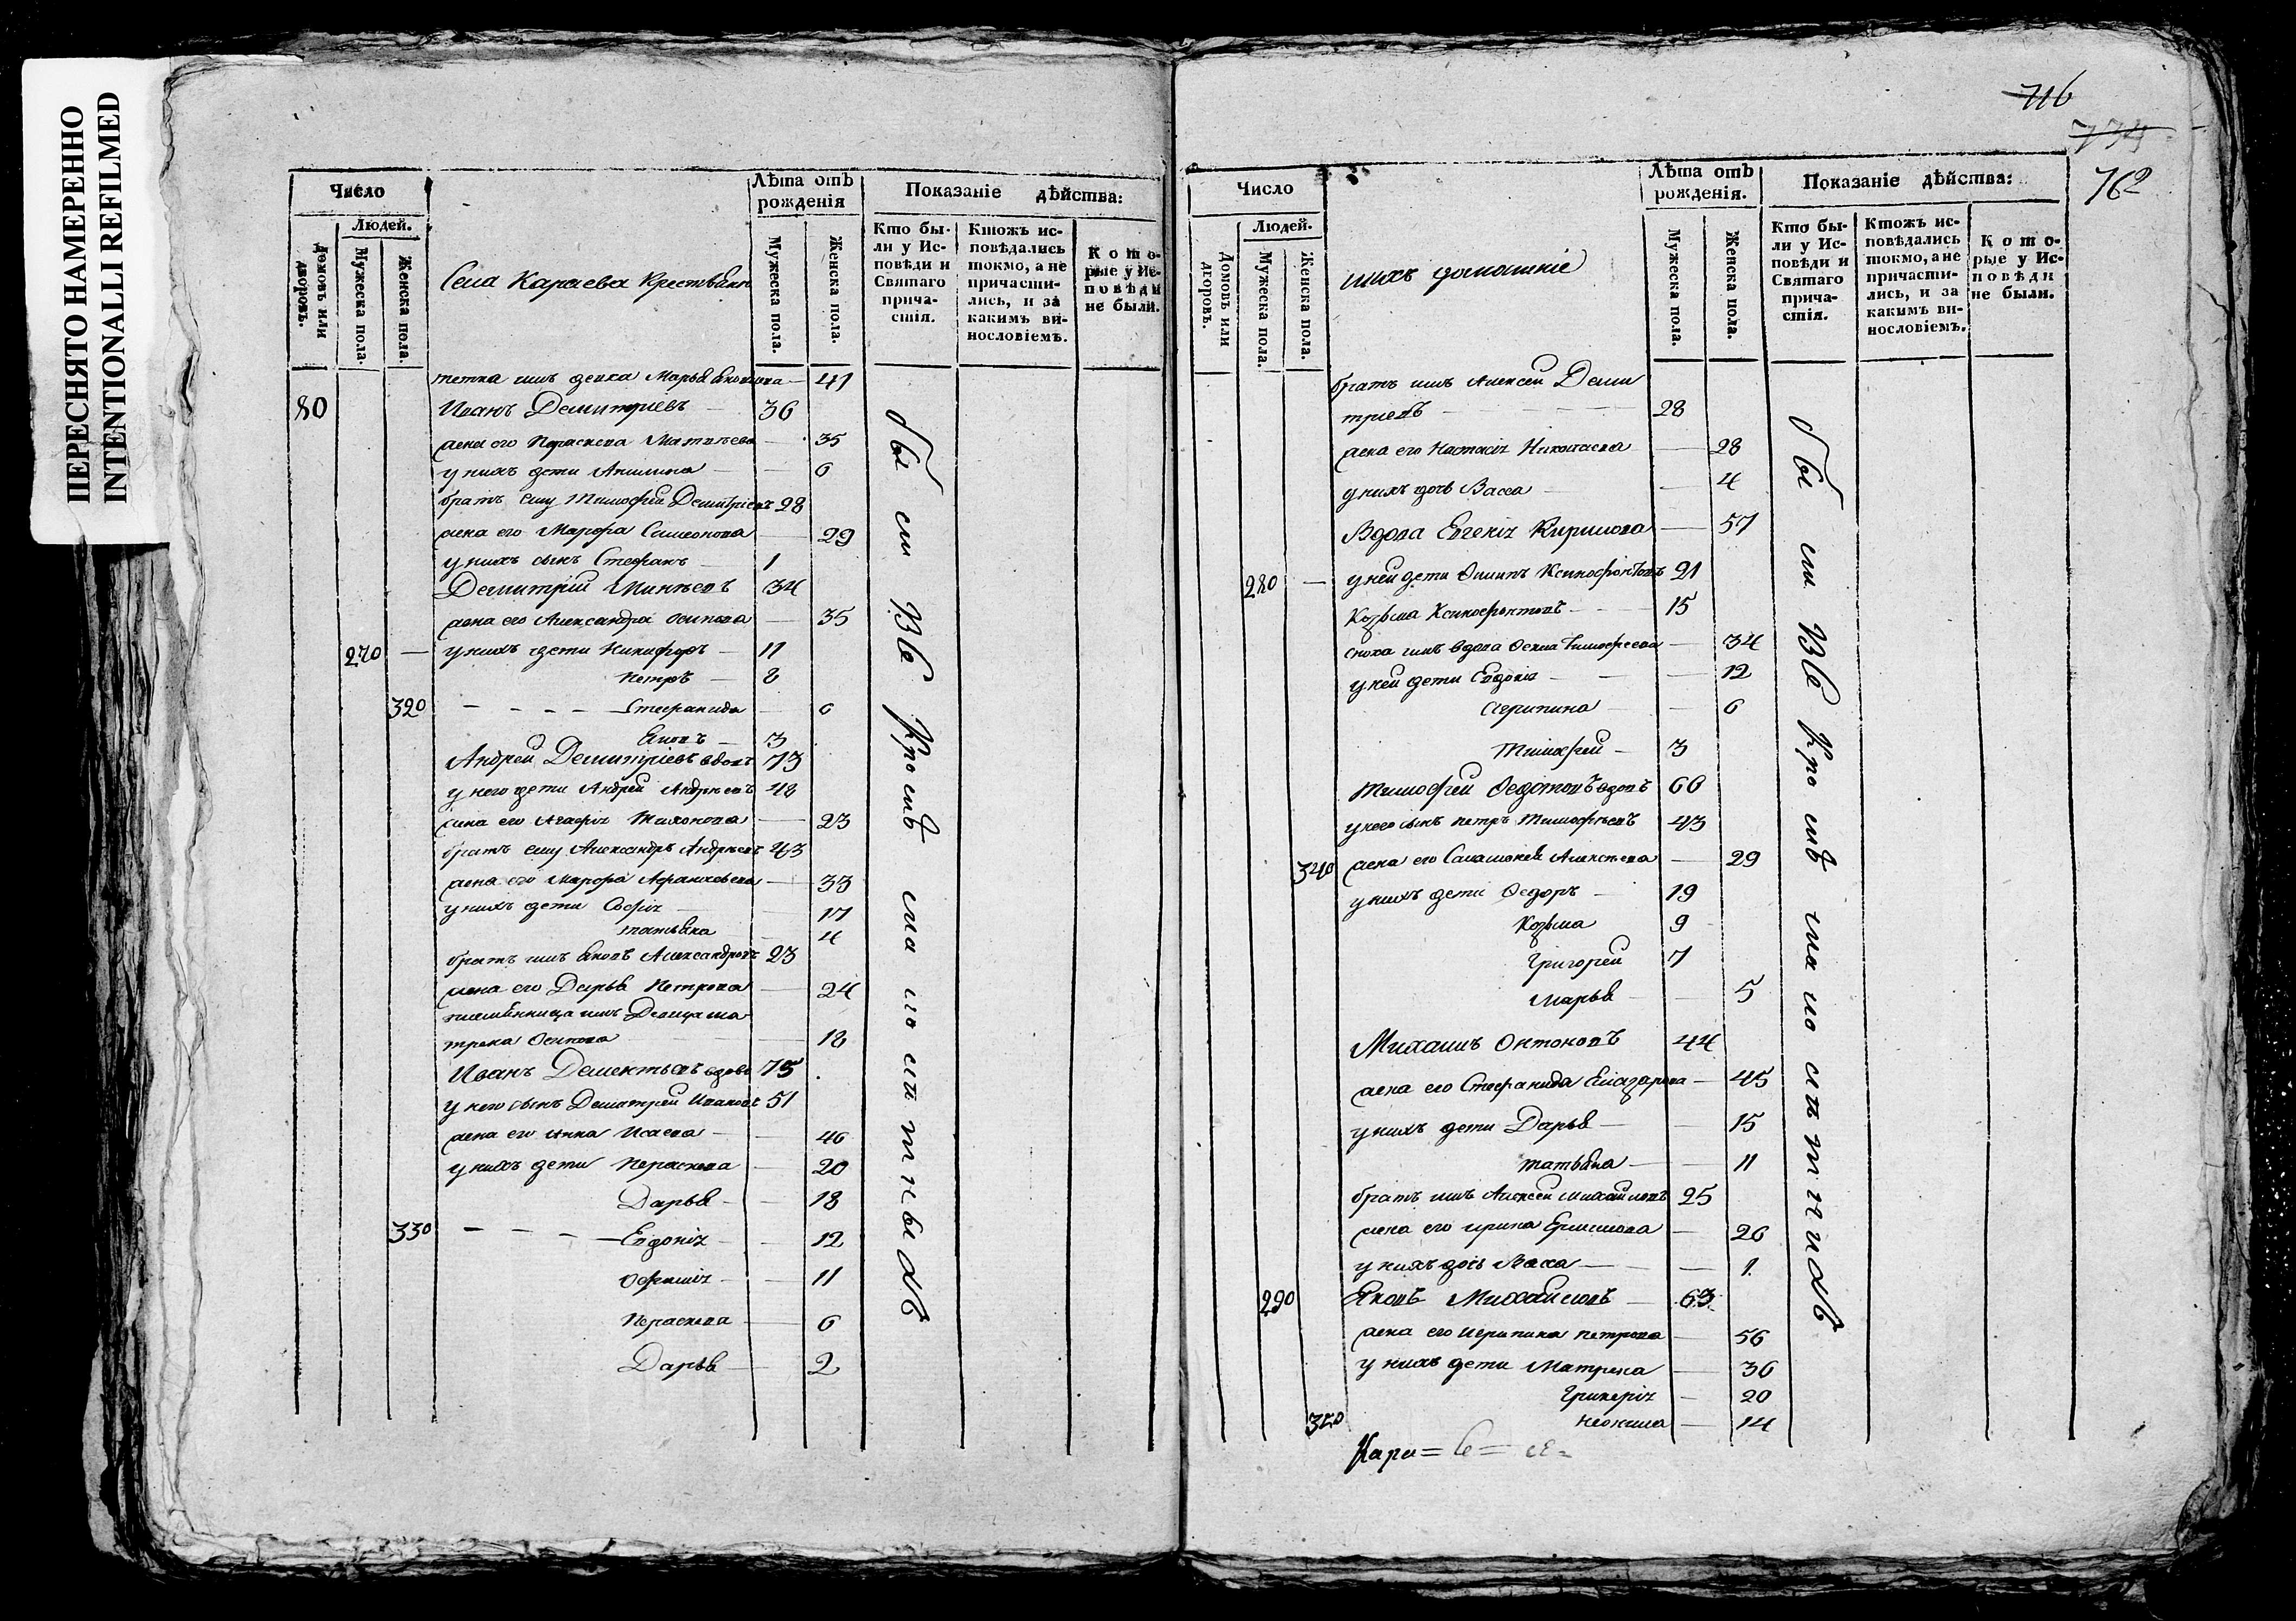 ПЕРЕСНЯТО НАМЕРЕННО
INTENTIONALLI REFILMED
Число
Людей.
Домовъ или дворовъ.
Мужеска пола.
Женска пола.
Села Караева Крестьяне
Лѣта отъ рожденія
Мужеска пола.
Женска пола.
Показаніе дѣйства:
Кто были у Исповѣди и Святаго причастія.
Ктожъ исповѣдались токмо, а не причастились, и за какимъ винословіемъ.
Которые у Исповѣди не были.
тетка ихъ девка Марья 41
80 Иванъ Демитріевъ 36
жена его Пераскева Матвѣева 35
у нихъ дети Акилина 6
братъ ему Тимофей Демитріевъ 28
жена его Марфа Симеонова 29
у нихъ сынъ Стефанъ 1
Демитрій Минѣевъ 34
жена его Александра Осипова 35
270 у нихъ дети Никифоръ 11
Петръ 8
320 Стефанида 6
Яковъ 3
Андрей Демитріевъ вдовъ 73
у него дети Андрей Андрѣевъ 48
жена его Агафія Тихонова 23
братъ ему Александръ Андрѣевъ 43
жена его Марфа 33
у нихъ дети Софія 17
Татьяна 4
братъ ихъ Яковъ Александровъ 23
жена его Дарья Петрова 24
племянница ихъ Девица Ма
трена Осипова 18
Иванъ Дементьевъ вдовъ 75
у него сынъ Демитрей Ивановъ 51
жена его Анна Исаева 46
у нихъ дети Пераскева 20
Дарья 18
330 Евдокія 12
Офимія 11
Пераскева 6
Дарья 2
716
734
762
Число
Людей.
Домовъ или дворовъ.
Мужеска пола
Женска пола.
ихъ домашніе
Лѣта отъ рожденія.
Мужеска пола.
Женска пола.
Показаніе дѣйства:
Кто были у Исповѣди и Святаго причастія.
Ктожъ исповѣдались токмо, а не причастились, и за какимъ винословіемъ.
Которые у Исповѣди не были.
братъ ихъ Алексей Деми
тріевъ 28
жена его Настасія Николаева 28
у нихъ дочь Васса 4
Вдова Евгенія Кирилова 57
280 у ней дети Филипъ Ксенофонтовъ 21
Козьма Ксенофонтовъ 15
сноха ихъ вдова Фекла Тимофеева 34
у ней дети Евдокія 12
Агрипина 6
Тимофей 3
Тимофей Федотовъ вдовъ 66
у него сынъ Петръ Тимофѣевъ 43
340 жена его Саламонея Алексѣева 29
у нихъ дети Федоръ 19
Козьма 9
Григорей 7
Марья 5
Михаилъ Онтоновъ 44
жена его Стефанида Елазарова 45
у нихъ дети Дарья 15
Татьяна 11
братъ ихъ Алексей Михайловъ 25
жена его Ирина Ермилова 26
у нихъ дочь Васса 1
290 Яковъ Михайловъ 63
жена его Агрипина Петрова 56
у нихъ дети Матрена 36
Гликерія 20
350 Неонила 14